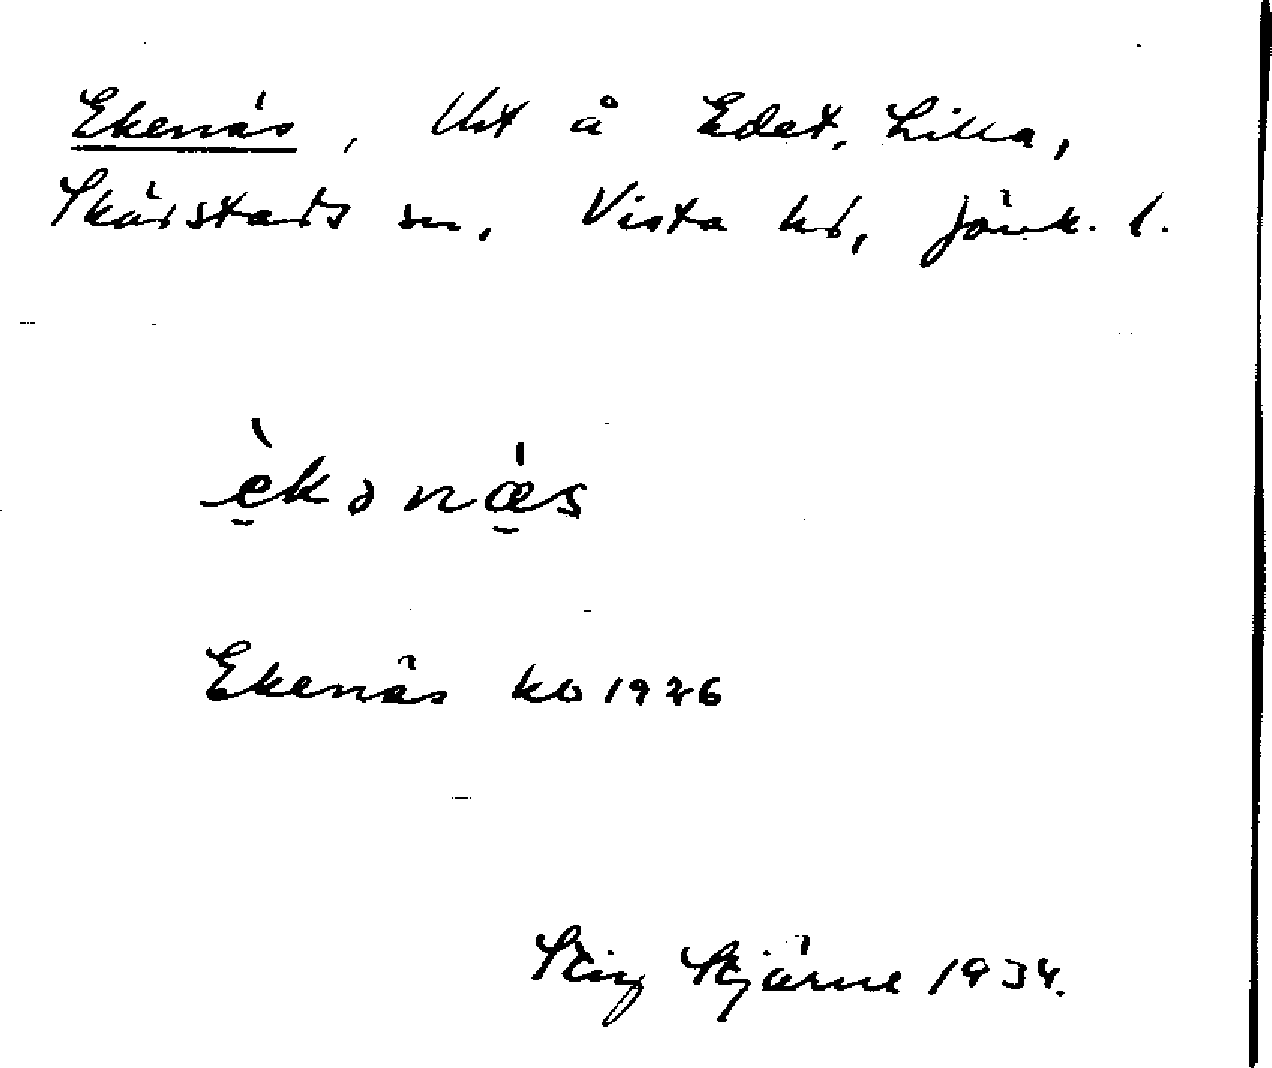 Ekenäs, Uht å Edet, Lilla,
Skärstads sn, Vista hd, Jönk. l.
è̱kənǽ̱s
Ekenäs kb 1926
Stig Stjärne 1934.